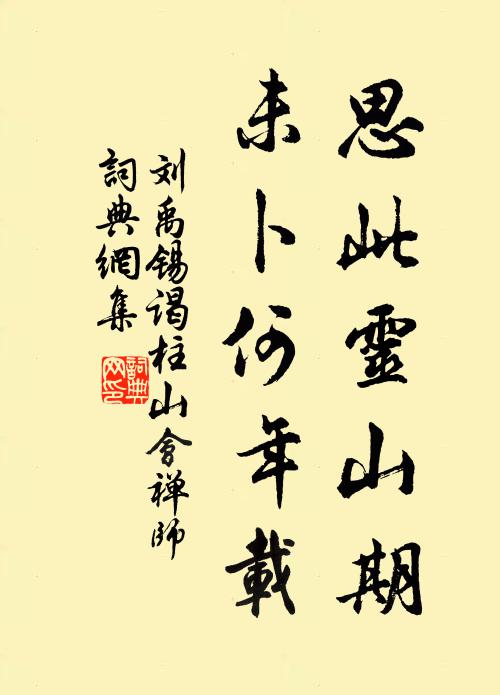 思此靈山期
未卜何年載
刘禹锡谒柱山会禅師
詞典網集
詞典
网印